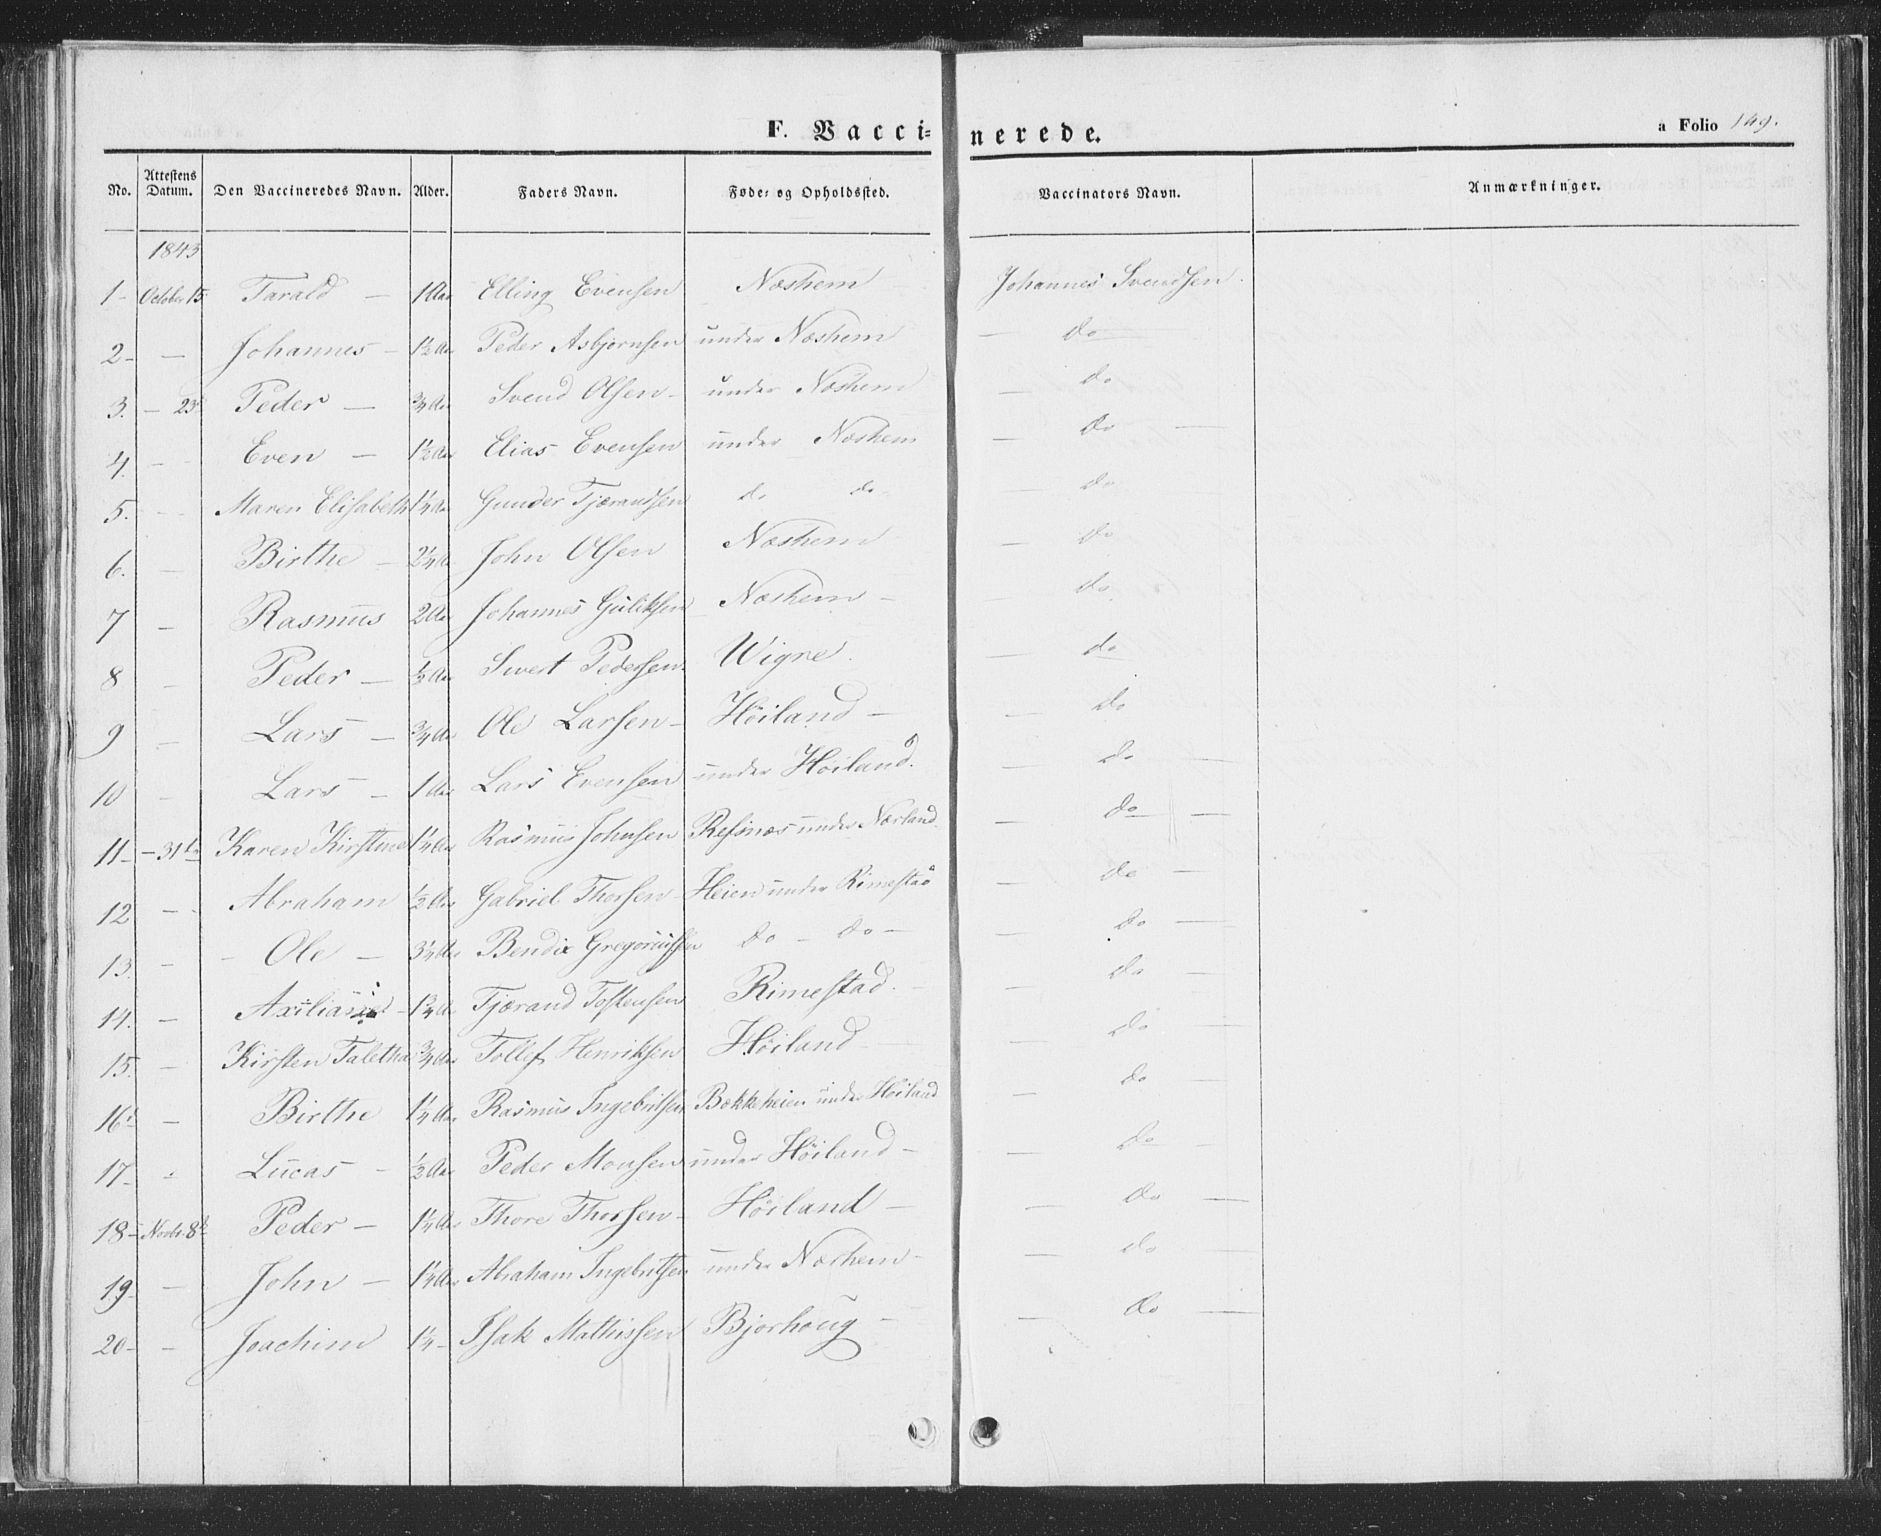 F. Vaccinerede. a Folio 149.
No. Attestens Datum. Den Vaccineredes Navn. Alder. Faders Navn. Føde- og Opholdssted. Vaccinators Navn. Anmærkninger.
1843
1 - October 15 Tarald - 1 Aar Elling Evensen Næshem Johannes Svendsen.
2 - - Johannes - 1½ Aar Peder Asbjørnsen under Næshem - do
3. - 23 Peder - ¾ Aar Svend Olsen - under Næshem - do
4. - Even - 1½ Aar Elias Evensen under Næshem - do -
5. - Maren Elisabeth 1¼ Aar Gunder Tjærandsen do do - - do
6. - Birthe - 2¼ Aar John Olsen Næshem - do
7 - Rasmus 2 Aar Johannes Guliksen Næshem - do.
8 - Peder - ½ Aar Sivert Pedersen Wigre. - do
9 - Lars - ¾ Aar Ole Larsen - Höiland - - do
10 - Lars - 1 Aar Lars Evensen under Höiland. - do -
11 - - 31te Karen Kirstine 1¼ Aar Rasmus Johnsen Refsnæs under Nærland - do -
12 - Abraham ½ Aar Gabriel Thorsen - Heien under Rimestad - do -
13. - Ole - 3¼ Aar Bendix Gregoriussen do - do - - do -
14. - Axilias - 1¾ Aar Tjærand Tostensen Rimestad. - do -
15. - Kirsten Taletha ¾ Aar Tollef Henriksen Höiland - do -
16 - Birthe 1¼ Aar Rasmus Ingebritsen Bækkeheien under Höiland - do -
17 - Lucas - ½ Aar Peder Monsen under Höiland - - do -
18 - Novbr. 8de Peder - 1¼ Aar Thore Thorsen - Höiland - - do -
19 - - John - 1¼ Aar Abraham Ingebritsen under Næshem - - do -
20 - - Joachim 1¼ - Isak Mathissen Bjorhoug - - do -